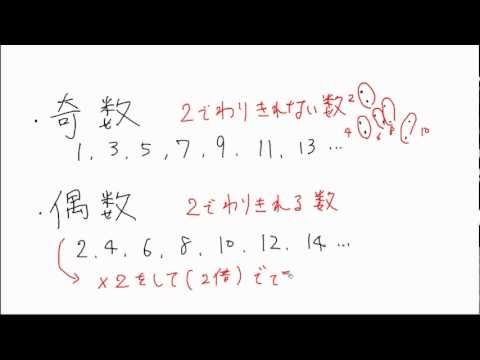 ・奇数 2でわりきれない数
2 4 6 8 10
1, 3, 5, 7, 9, 11, 13 …
・偶数 2でわりきれる数
2, 4, 6, 8, 10, 12, 14 …
×2をして(2倍)でて